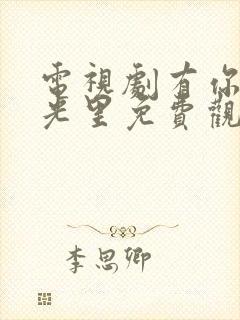 電視劇有你
光里免費觀
李思卿